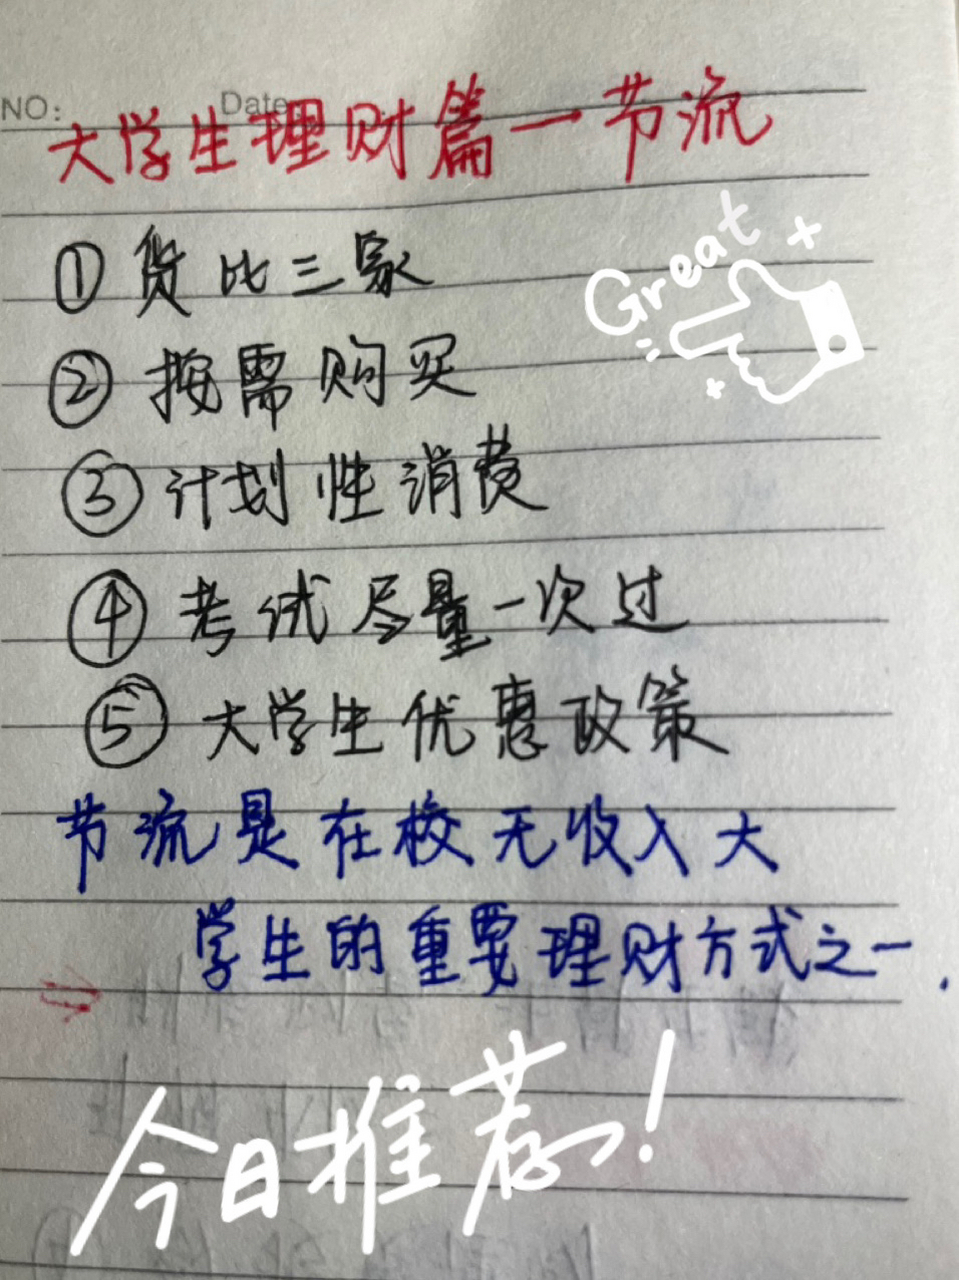 NO: Date
大学生理财篇一节流
Great
①货比三家
②按需购买
③计划性消费
④考试尽量一次过
⑤大学生优惠政策
节流是在校无收入大
学生的重要理财方式之一.
今日推荐!